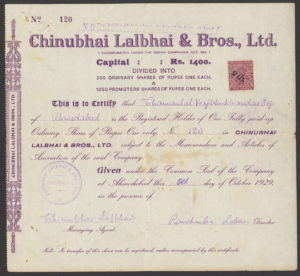 No 120
Chinubhai Lalbhai & Bros., Ltd.
( INCORPORATED UNDER THE INDIAN COMPANIES ACT, 1913. )
Capital : Rs. 1400.
DIVIDED INTO
350 ORDINARY SHARES OF RUPEE ONE EACH.
&
1050 PROMOTERS' SHARES OF RUPEE ONE EACH.
This is to Certify that
of Ahmedabad is the Registered Holder of One Fully paid-up
Ordinary Share of Rupee One only No. 120 in CHINUBHAI
LALBHAI & BROS., LTD. subject to the Memorandum and Articles of
Association of the said Company.
Given under the Common Seal of the Company
at Ahmedabad this day of October 1929.
Chinubhai Lalbhai
Managing Agent
Director
Note:- No transfer of this share can be registered unless accompanied by this certificate.
CHINUBHAI LALBHAI & BROS., LTD.